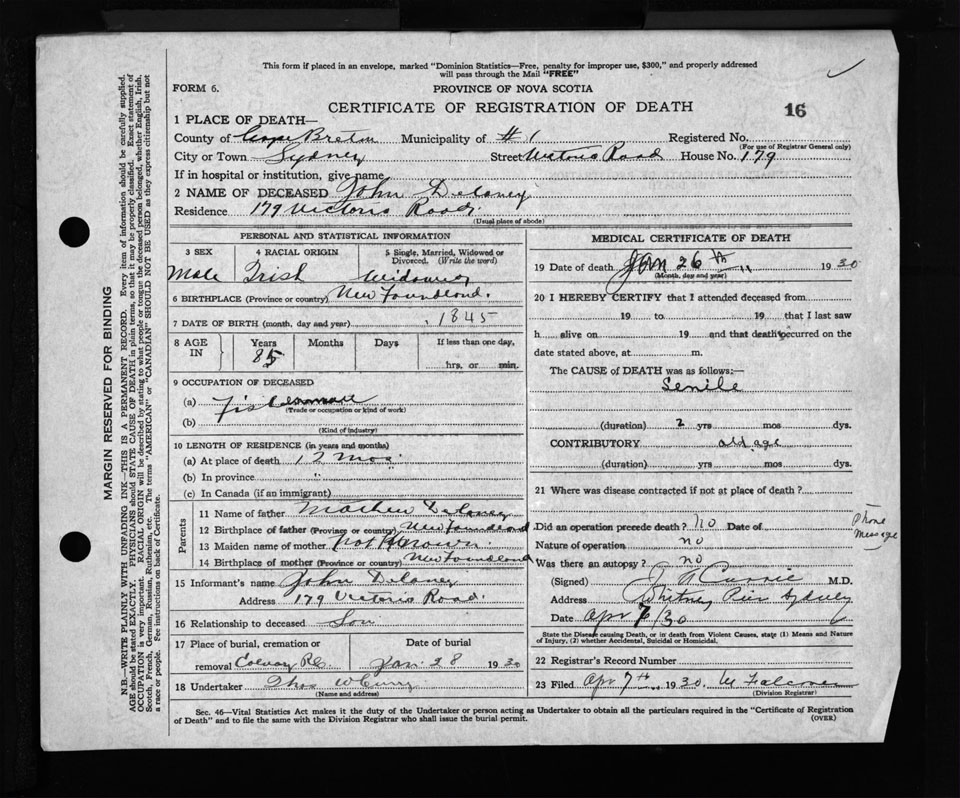 This form if placed in an envelope, marked "Dominion Statistics—Free, penalty for improper use, $300," and properly addressed
will pass through the Mail "FREE"
FORM 6.
PROVINCE OF NOVA SCOTIA
CERTIFICATE OF REGISTRATION OF DEATH
16
1 PLACE OF DEATH—
County of Cape Breton Municipality of #1 Registered No.
(For use of Registrar General only)
City or Town Sydney Street Victoria Road House No. 179
If in hospital or institution, give name
2 NAME OF DECEASED John Delaney
Residence 179 Victoria Road
(Usual place of abode)
PERSONAL AND STATISTICAL INFORMATION
3 SEX 4 RACIAL ORIGIN 5 Single, Married, Widowed or Divorced. (Write the word)
Male Irish Widower
6 BIRTHPLACE (Province or country) Newfoundland.
7 DATE OF BIRTH (month, day and year) 1845
8 AGE IN Years Months Days If less than one day,
85 hrs, or min.
9 OCCUPATION OF DECEASED
(a) Fisherman
(Trade or occupation or kind of work)
(b)
(Kind of industry)
10 LENGTH OF RESIDENCE (in years and months)
(a) At place of death 12 Mos.
(b) In province "
(c) In Canada (if an immigrant)
Parents
11 Name of father Mathew Delaney
12 Birthplace of father (Province or country) Newfoundland
13 Maiden name of mother Not Known.
14 Birthplace of mother (Province or country) Newfoundland
15 Informant's name John Delaney
Address 179 Victoria Road.
16 Relationship to deceased Son
17 Place of burial, cremation or Date of burial
removal Jan. 28 1930
18 Undertaker Thos W Curry
(Name and address)
MEDICAL CERTIFICATE OF DEATH
19 Date of death JAN 26 th 1930
(Month, day and year)
20 I HEREBY CERTIFY that I attended deceased from
19 to 19 that I last saw
h alive on 19 and that death occurred on the
date stated above, at m.
The CAUSE of DEATH was as follows:—
Senile
(duration) 2 yrs mos dys.
CONTRIBUTORY old age
(duration) yrs mos dys.
21 Where was disease contracted if not at place of death?
Did an operation precede death? no Date of
Nature of operation no
Was there an autopsy? no
Phone
Message
(Signed) Currie M.D.
Address Whitney Pier Sydney
Date Apr 7/30
State the Disease causing Death, or in death from Violent Causes, state (1) Means and Nature
of Injury, (2) whether Accidental, Suicidal or Homicidal.
22 Registrar's Record Number
23 Filed Apr 7th 1930. M Falconer
(Division Registrar)
Sec. 46—Vital Statistics Act makes it the duty of the Undertaker or person acting as Undertaker to obtain all the particulars required in the "Certificate of Registration
of Death" and to file the same with the Division Registrar who shall issue the burial permit.
(OVER)
MARGIN RESERVED FOR BINDING
N.B.—WRITE PLAINLY WITH UNFADING INK—THIS IS A PERMANENT RECORD. Every item of information should be carefully supplied.
AGE should be stated EXACTLY. PHYSICIANS should STATE CAUSE OF DEATH in plain terms, so that it may be properly classified. Exact statement of
OCCUPATION is very important. RACIAL ORIGIN will be described by stating to what people or tongue the deceased person belonged, whether English, Irish,
Scotch, French, German, Russian, Ruthenian, etc. The terms "AMERICAN" or "CANADIAN" SHOULD NOT BE USED as they express citizenship but not
a race or people. See instructions on back of Certificate.